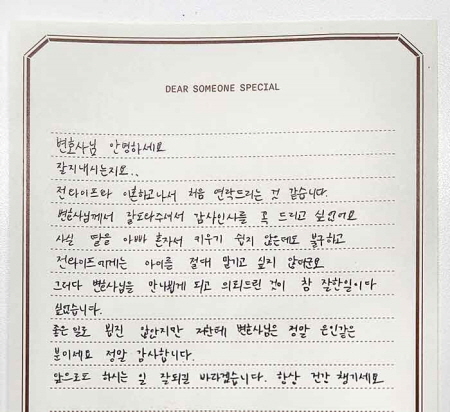 DEAR SOMEONE SPECIAL
변호사님 안녕하세요
잘지내시는지요..
전와이프와 이혼하고나서 처음 연락드리는 것 같습니다.
변호사님께서 잘도와주셔서 감사인사를 꼭 드리고 싶었어요
사실 딸을 아빠 혼자서 키우기 쉽지 않은데도 불구하고
전와이프에게는 아이를 절대 맡기고 싶지 않았군요
그러다 변호사님을 만나뵙게 되고 의뢰드린 것이 참 잘한일이다
싶었습니다.
좋은 일로 뵙진 않았지만 저한테 변호사님은 정말 은인같은
분이세요 정말 감사합니다.
앞으로도 하시는 일 잘되길 바라겠습니다. 항상 건강 챙기세요